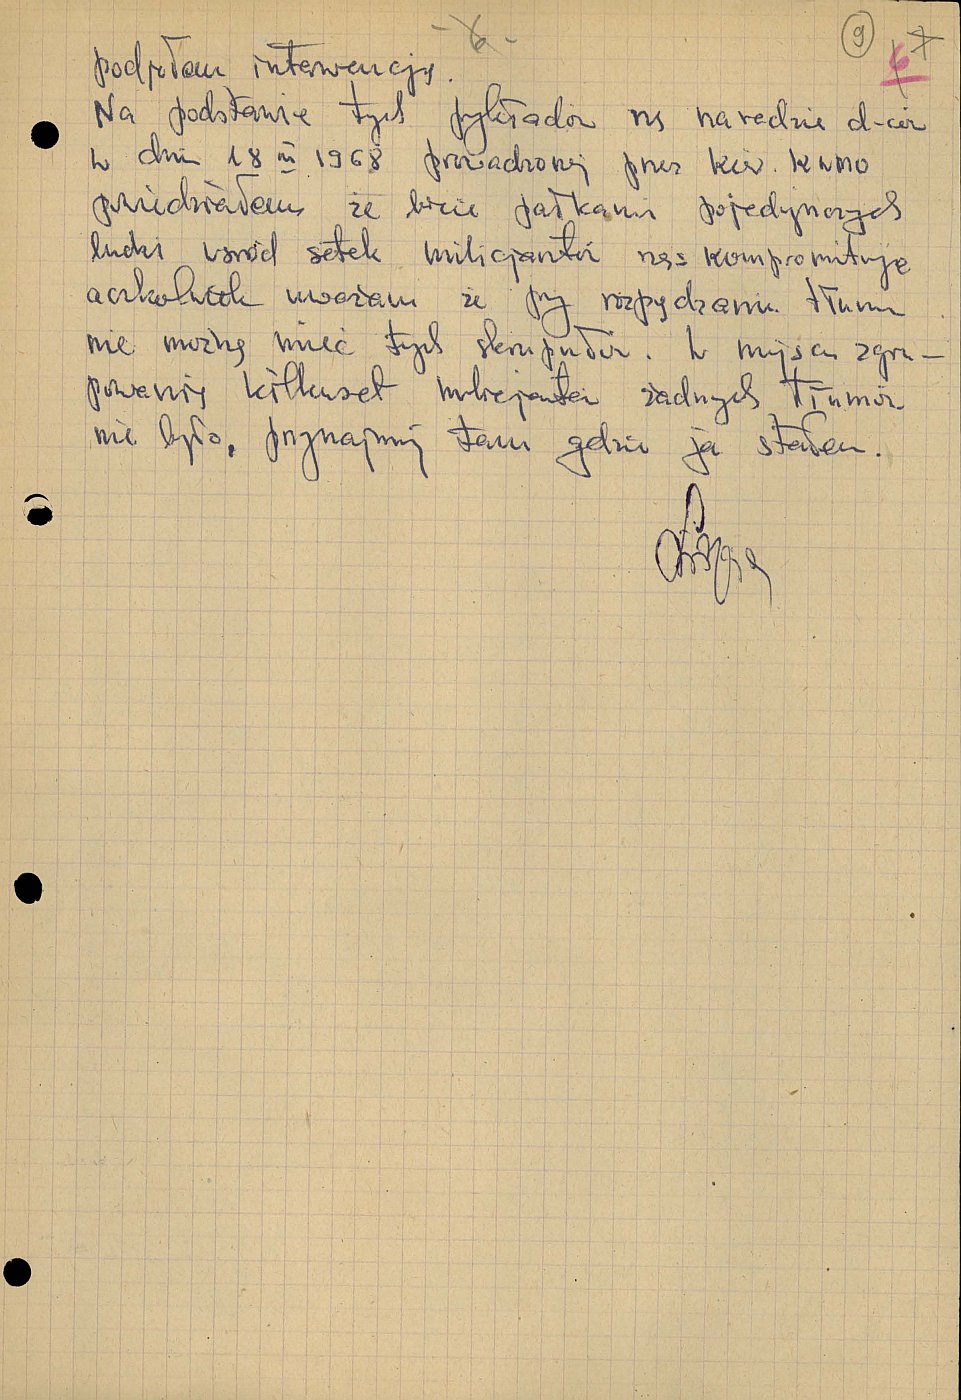 - 6 -
9
6 7
podjąłem interwencję.
Na podstawie tych przykładów na naradzie d-ców
w dniu 18 III 1968 prowadzonej przez kier. KWMO
powiedziałem, że bicie pałkami pojedynczych
ludzi wśród setek milicjantów nas kompromituje
aczkolwiek uważam że przy rozpędzaniu tłumu
nie można mieć tych skrupułów. W miejscu zgru-
powania kilkuset milicjantów żadnych tłumów
nie było, przynajmniej tam gdzie ja stałem.